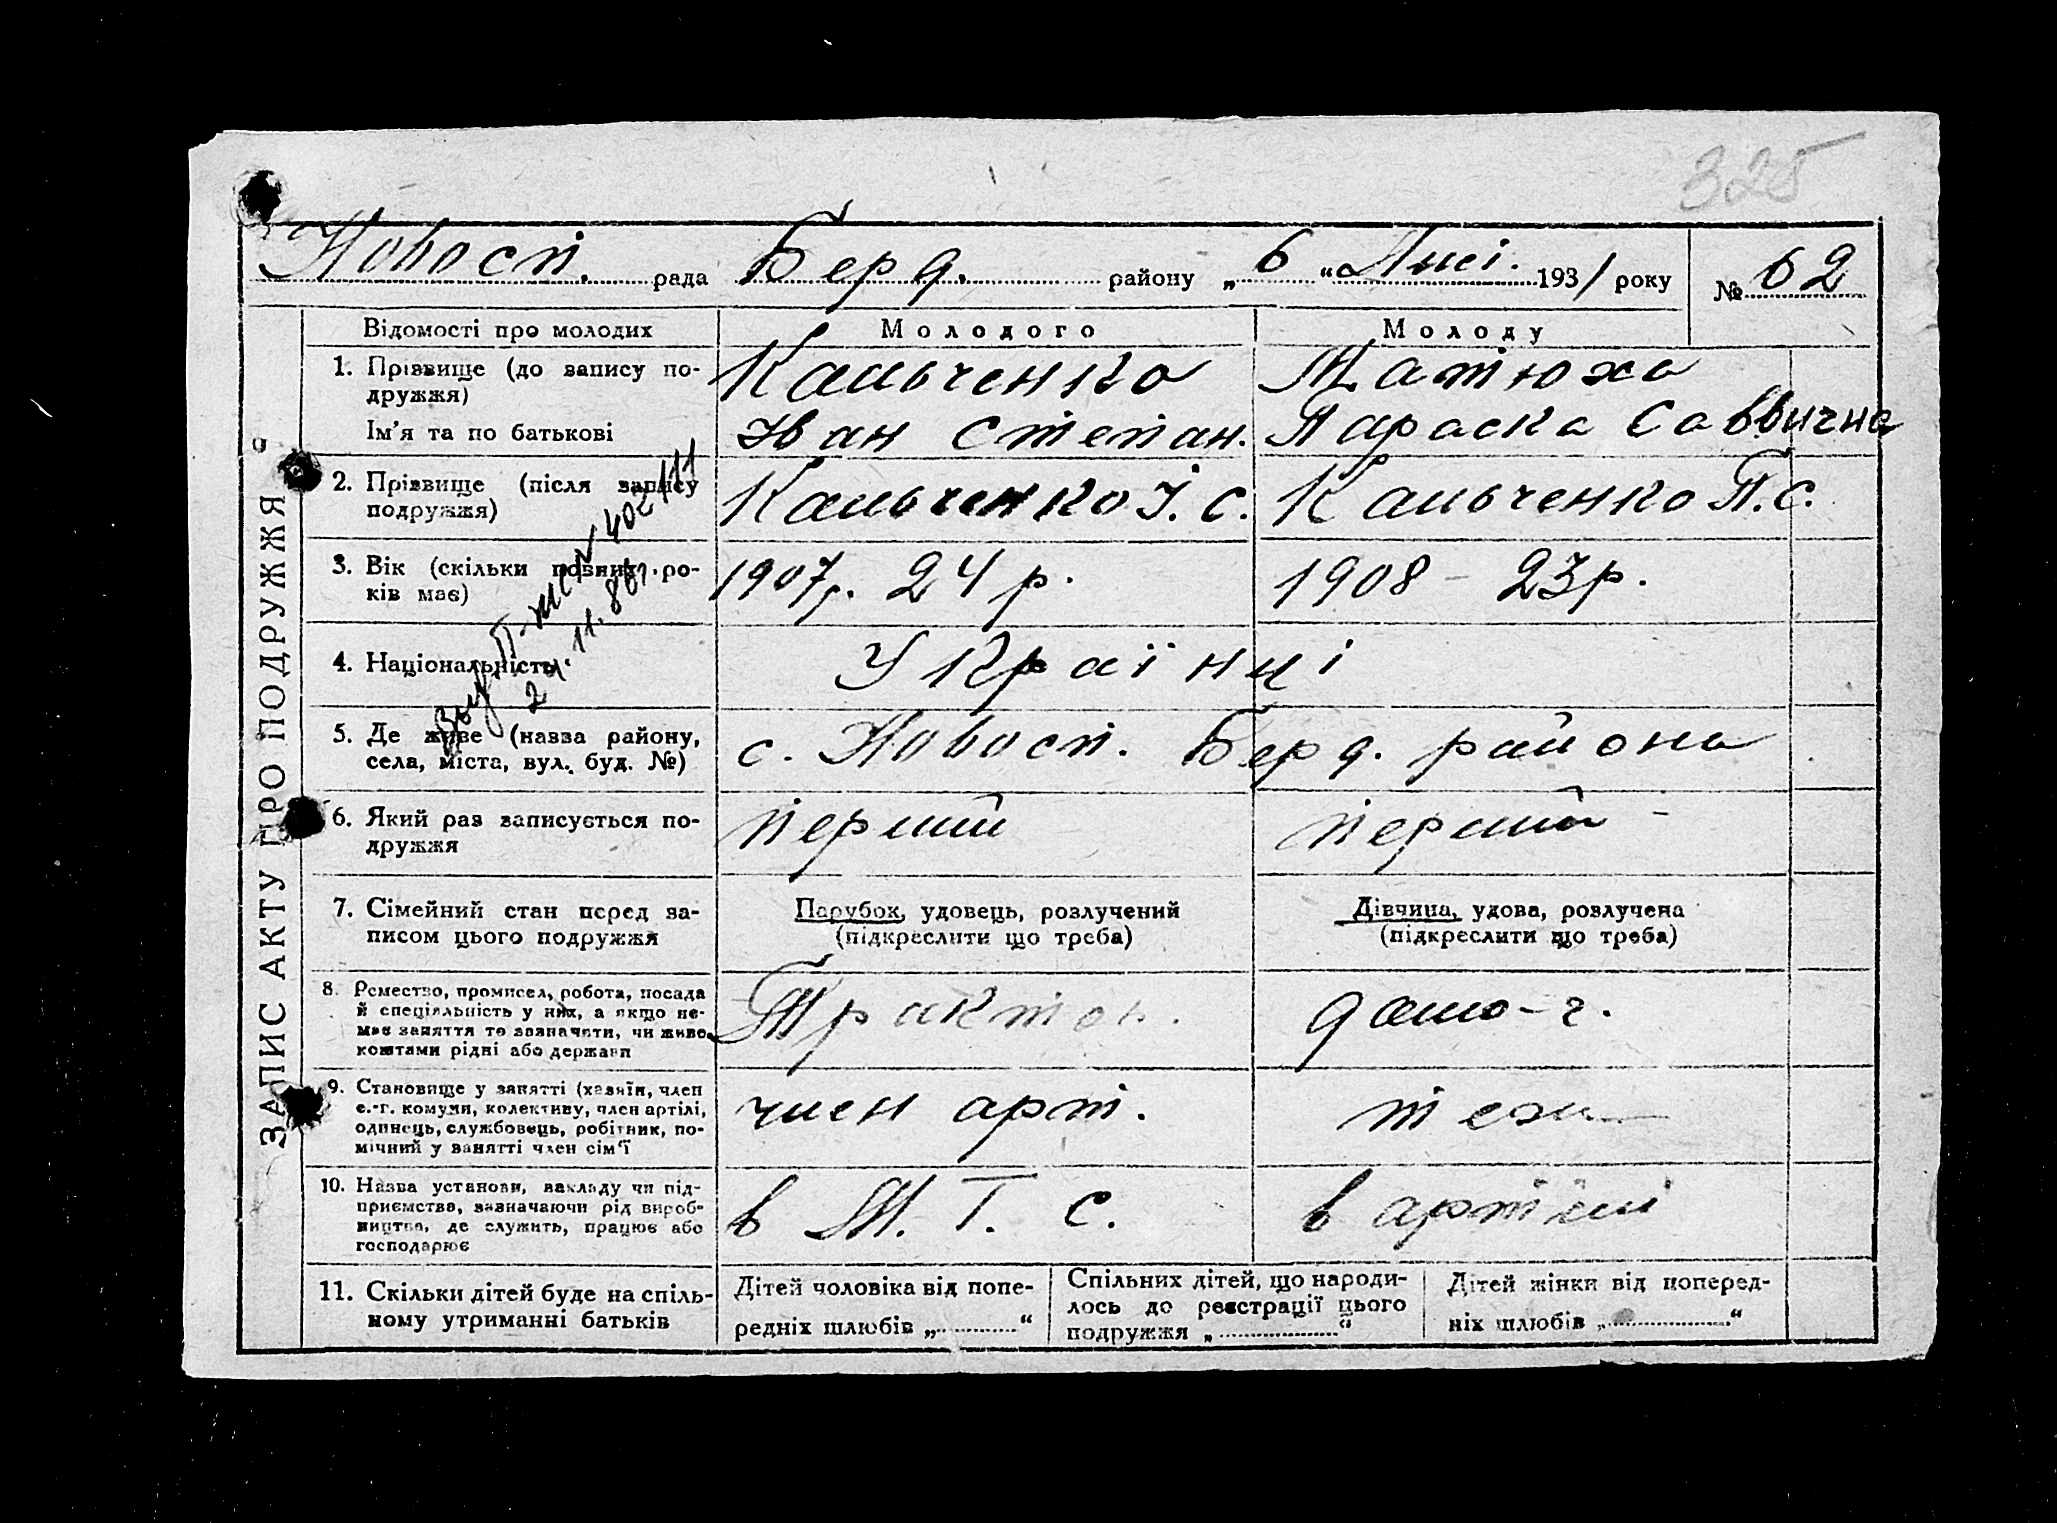 325
Новосп. рада Берд. району „6 “ Лисі. 1931 року № 62
ЗАПИС АКТУ ПРО ПОДРУЖЖЯ
Відомості про молодих Молодого Молоду
1. Прізвище (до запису по- Кальченко Матюха
дружжя)
Ім'я та по батькові Іван Степан. Параска Саввична
2. Прізвище (після запису Кальченко І. С. Кальченко П. С.
подружжя)
3. Вік (скільки повних ро- 1907р. 24 р. 1908 – 23р.
ків має)
24.11.86г.
4. Національність Українці
5. Де живе (назва району, с. Новосп. Берд. района
села, міста, вул. буд. №)
6. Який раз записується по- перший перший
дружжя
7. Сімейний стан перед за- Парубок, удовець, розлучений Дівчина, удова, розлучена
писом цього подружжя (підкреслити що треба) (підкреслити що треба)
8. Ремество, промисел, робота, посада Трактор. дома-г.
й спеціяльність у них, а якщо не-
має заняття то зазначити, чи живе
коштами рідні або держави
9. Становище у занятті (хазяїн, член член арт. теж
с.-г. комуни, колективу, член артілі,
одинець, службовець, робітник, по-
мічний у занятті член сім'ї
10. Назва установи, закладу чи під- в М. Т. С. в артілі
приємства, зазначаючи рід вироб-
ництва, де служить, працює або
господарює
11. Скільки дітей буде на спіль- Дітей чоловіка від попе- Спільних дітей, що народи- Дітей жінки від поперед-
ному утриманні батьків редніх шлюбів „ “ лось до реєстрації цього ніх шлюбів „ “
подружжя „ “